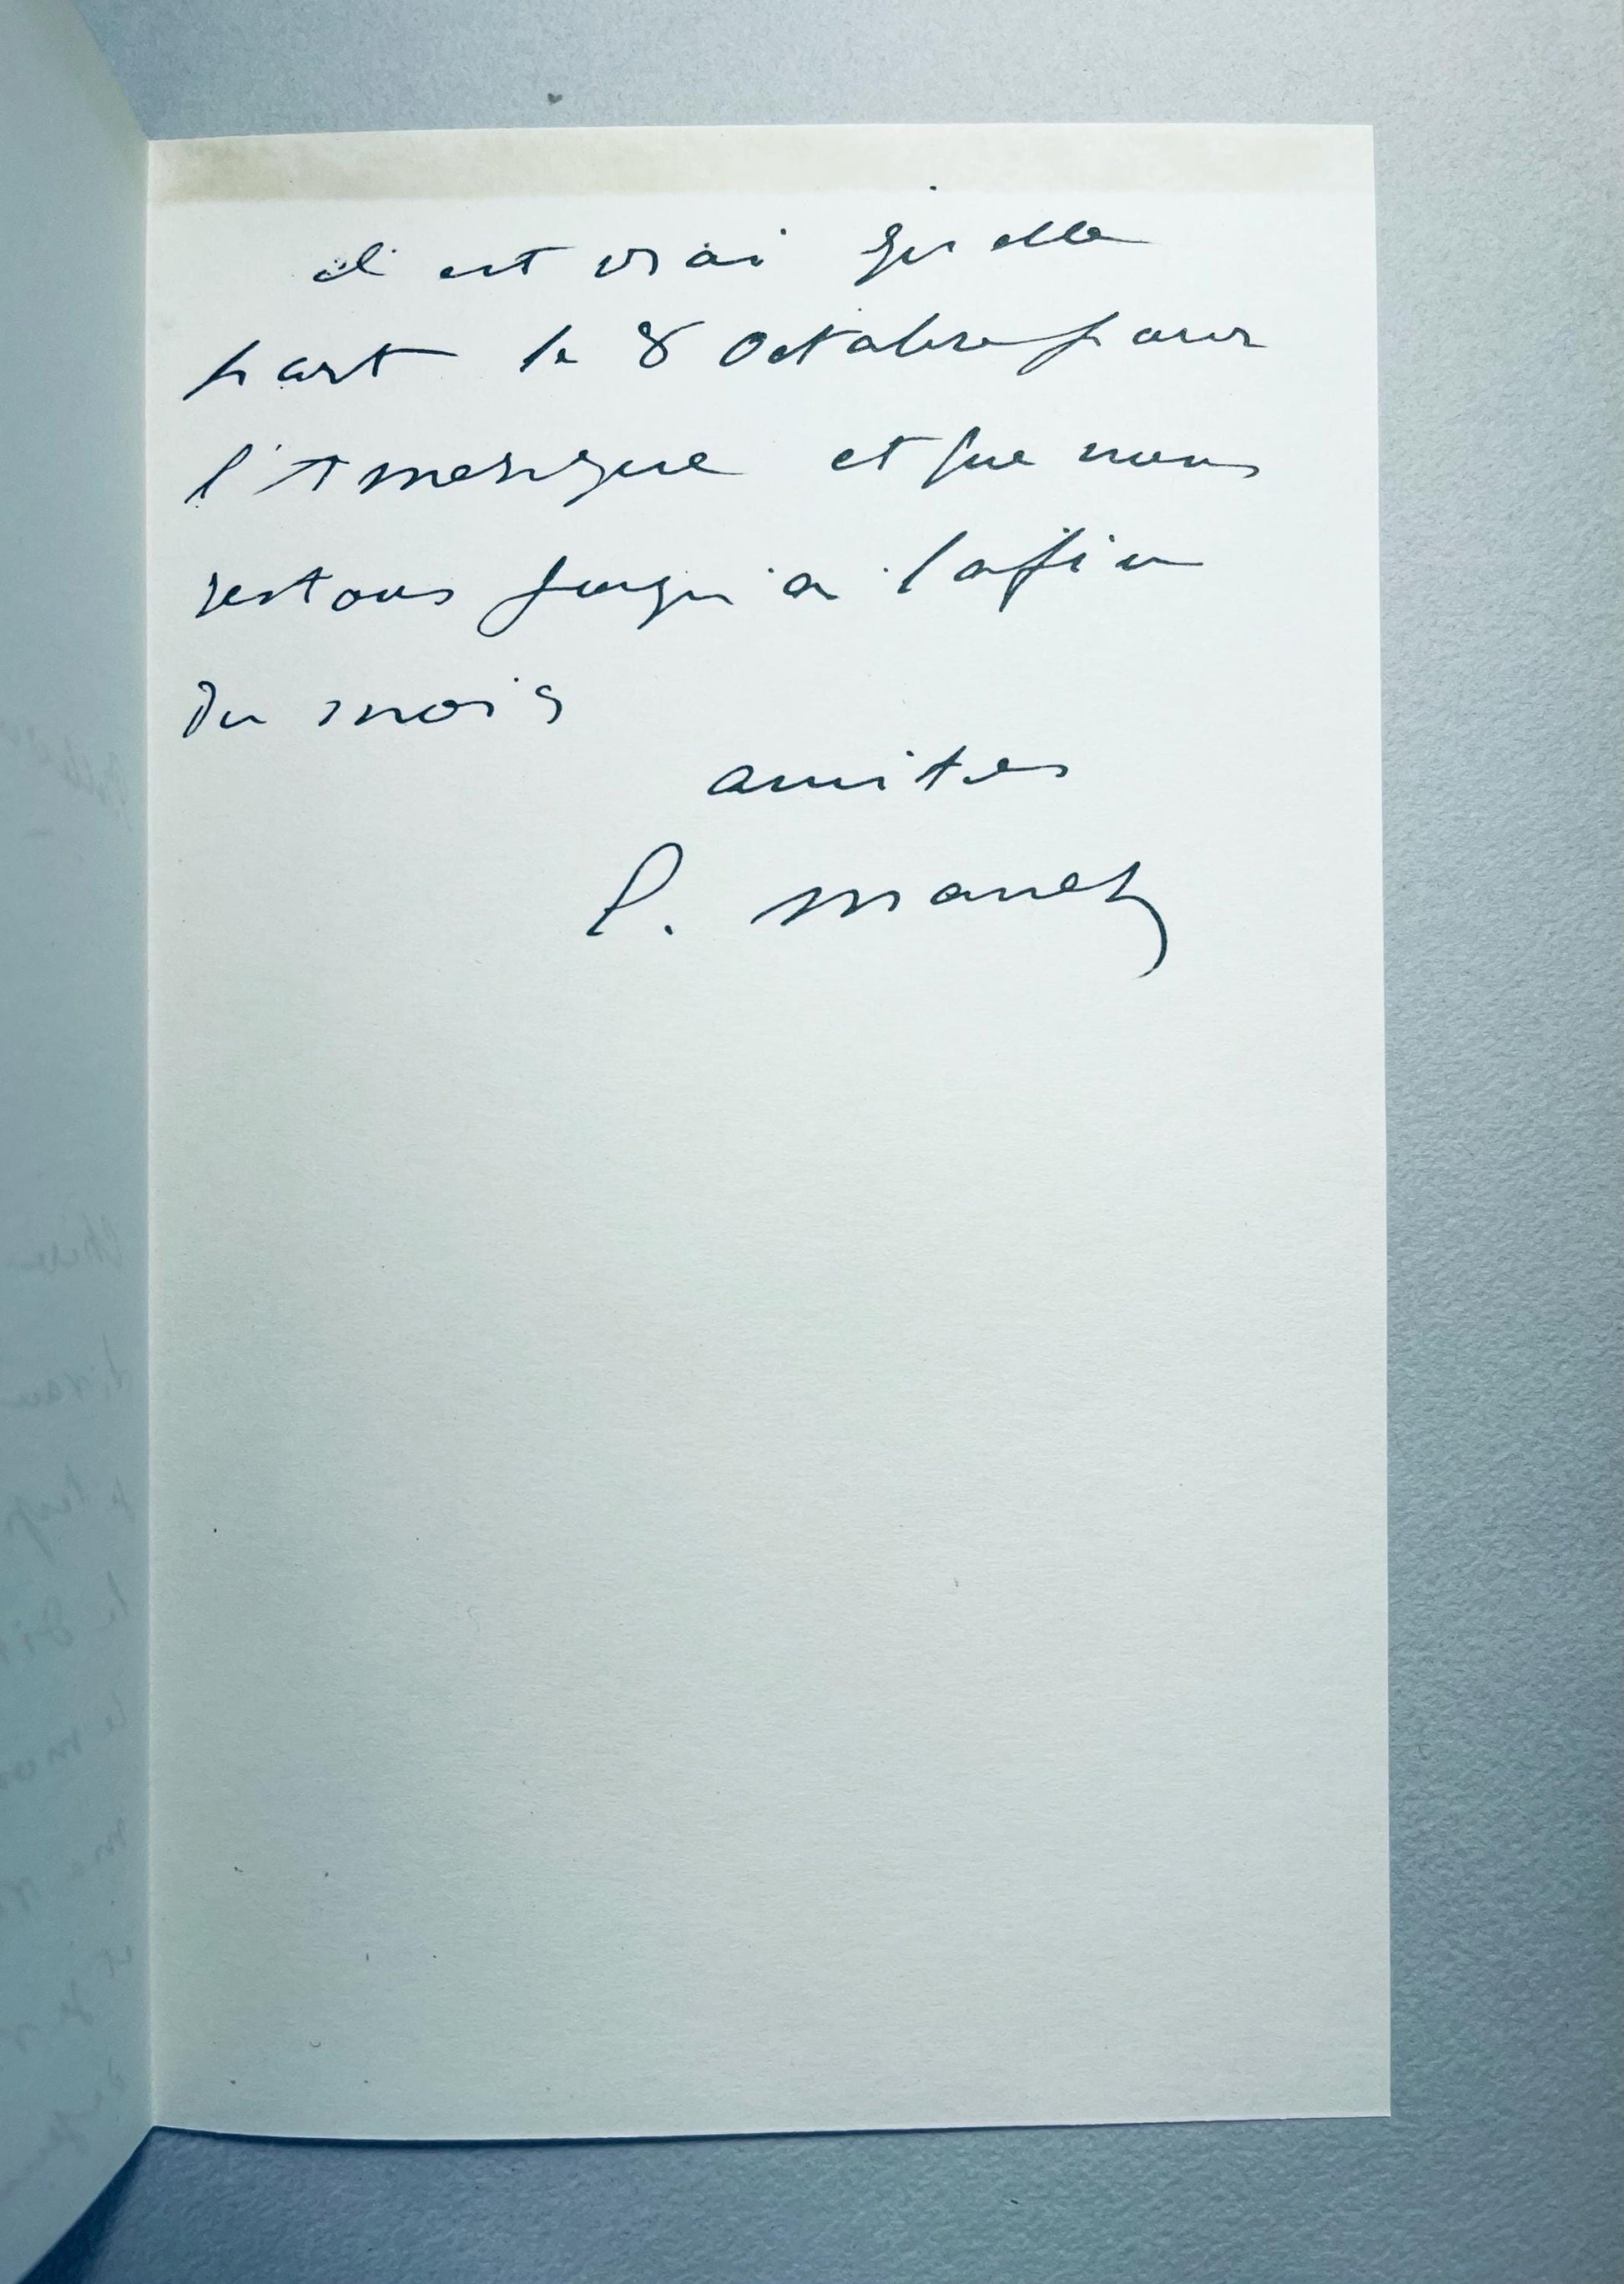 il est vrai qu'elle
part le 8 Octobre pour
l'Amerique et que nous
restons jusqu'a la fin
du mois
amities